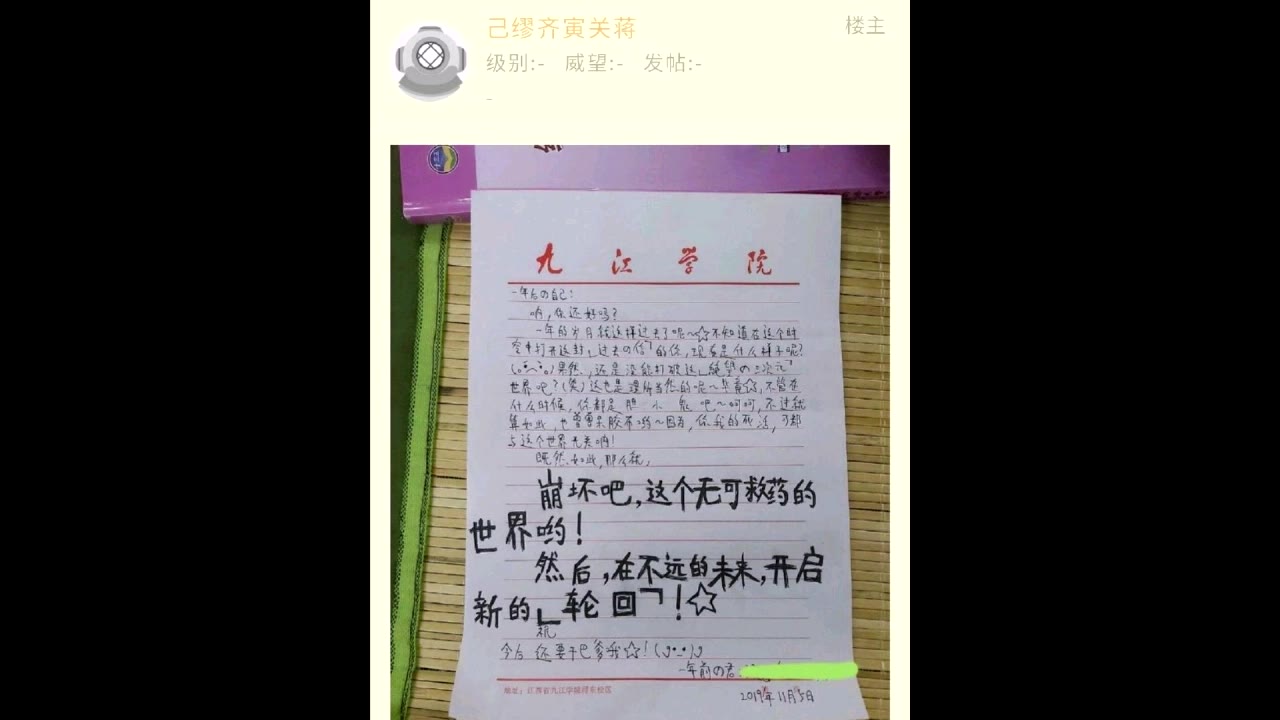 己缪齐寅关蒋
楼主
级别:- 威望:- 发帖:-
-
九江学院
一年后の自己：
哟，你还好吗？
一年的岁月就这样过去了呢～☆不知道在这个时
空中打开这封」过去の信「的你，现在是什么样子呢？
果然，还是没能打破这」绝望の三次元「
世界吧？（笑）这也是理所当然的呢～毕竟☆，不管在
什么时候，你都是胆小鬼吧～呵呵，不过就
算如此，也
因为，你我的死活，可都
与这个世界无关哟！
既然如此，那么就，
崩坏吧，这个无可救药的
世界哟！
然后，在不远的未来，开启
新的」轮回「！☆
今后还要干巴爹哦☆！
一年前の君
地址：江西省九江学院浔东校区
2019年11月5日